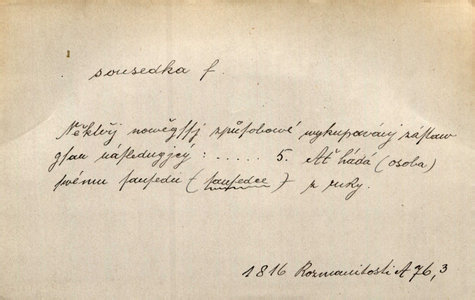 sousedka f
Někteřj nowěgssj způsobowé wykupowánj zástaw
gsau následugjcý : ..... 5. Ať hádá (osoba)
swému sausedu (sausedce) z ruky.
1816 Rozmanitosti A 76,3